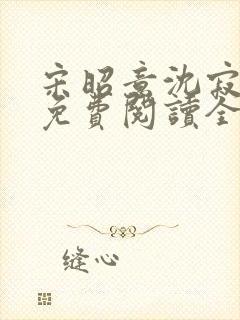 宋昭意沈寂
免費閱讀全
缝心